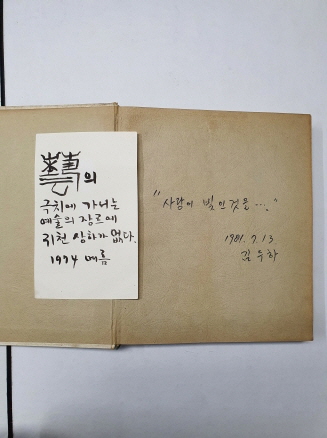 藝의
극치에 가서는
예술의 장르에
귀천 상하가 없다.
1974 여름
"사람이 빚은 것은…."
1981. 7. 13
김두하